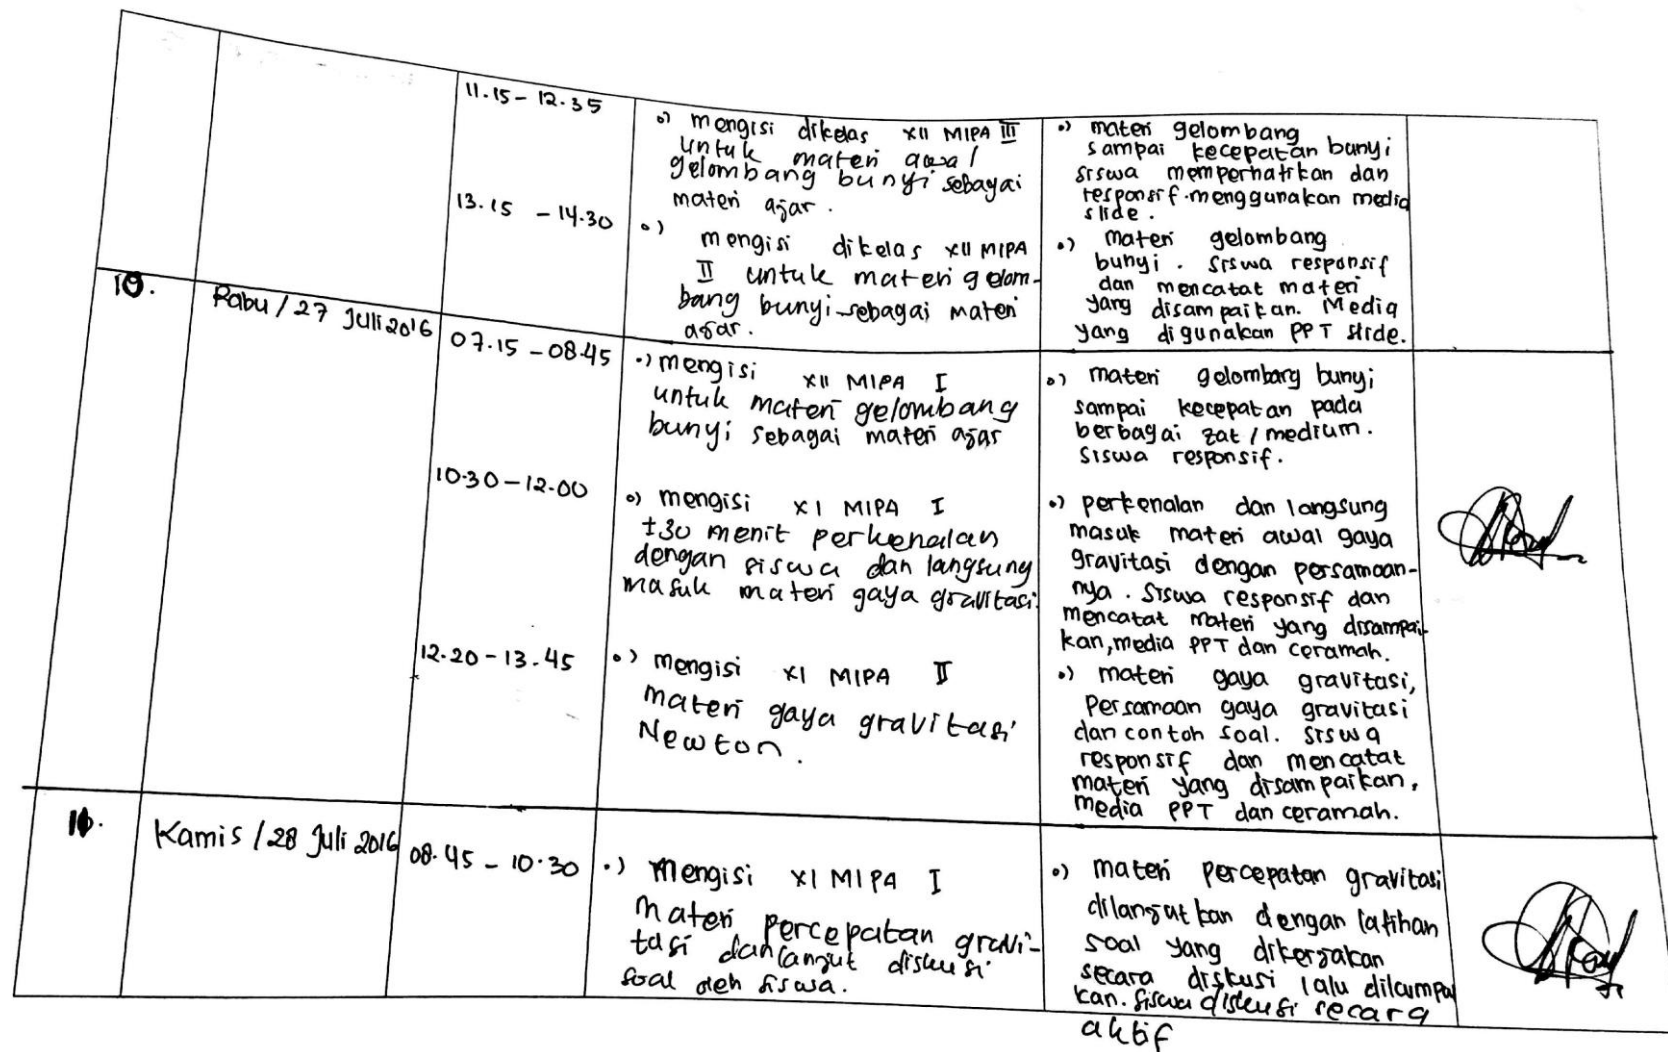 11.15 - 12.35
•) mengisi dikelas XII MIPA III
untuk materi awal
gelombang bunyi sebagai
materi ajar.
•) materi gelombang
sampai kecepatan bunyi
siswa memperhatikan dan
responsif. menggunakan media
slide.
13.15 - 14.30
•) mengisi dikelas XII MIPA
II untuk materi gelom-
bang bunyi sebagai materi
ajar.
•) materi gelombang
bunyi. siswa responsif
dan mencatat materi
yang disampaikan. Media
yang digunakan PPT slide.
10.
Rabu / 27 Juli 2016
07.15 - 08.45
•) mengisi XII MIPA I
untuk materi gelombang
bunyi sebagai materi ajar
•) materi gelombang bunyi
sampai kecepatan pada
berbagai zat / medium.
siswa responsif.
10.30 - 12.00
•) mengisi XI MIPA I
±30 menit perkenalan
dengan siswa dan langsung
masuk materi gaya gravitasi.
•) perkenalan dan langsung
masuk materi awal gaya
gravitasi dengan persamaan-
nya. siswa responsif dan
mencatat materi yang disampai-
kan, media PPT dan ceramah.
12.20 - 13.45
•) mengisi XI MIPA II
materi gaya gravitasi
Newton.
•) materi gaya gravitasi,
Persamaan gaya gravitasi
dan contoh soal. siswa
responsif dan mencatat
materi yang disampaikan,
media PPT dan ceramah.
11.
Kamis / 28 Juli 2016
08.45 - 10.30
•) Mengisi XI MIPA I
Materi percepatan gravi-
tasi dan lanjut diskusi
soal oleh siswa.
•) materi percepatan gravitasi
dilanjutkan dengan latihan
soal yang dikerjakan
secara diskusi lalu dikumpul
kan. siswa diskusi secara
aktif